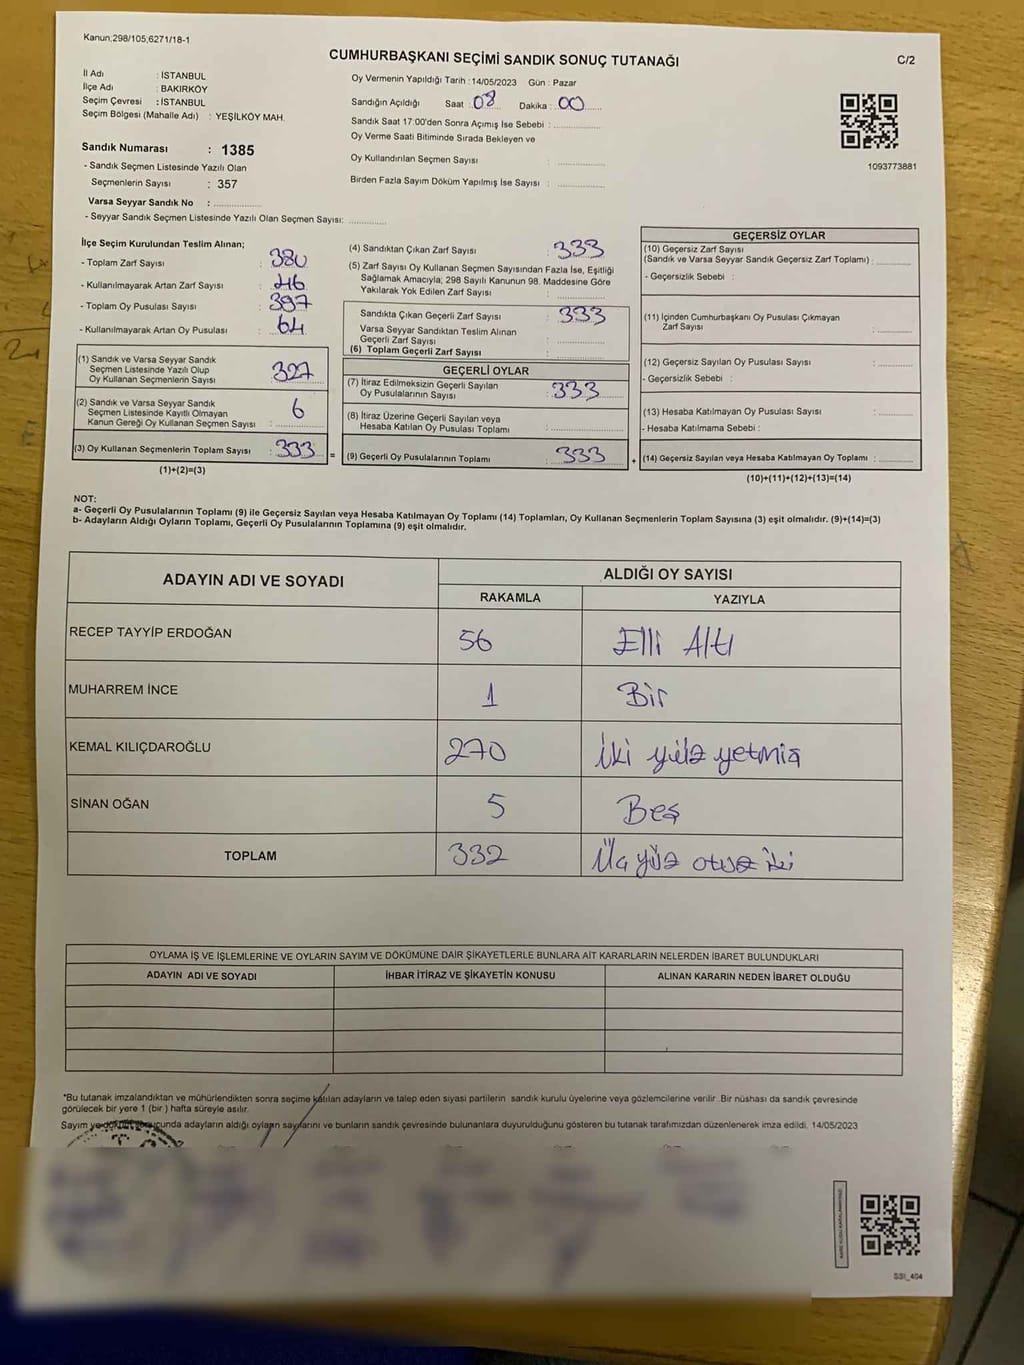 Kanun;298/105;6271/18-1
CUMHURBAŞKANI SEÇİMİ SANDIK SONUÇ TUTANAĞI
C/2
İl Adı : İSTANBUL
İlçe Adı : BAKIRKÖY
Seçim Çevresi : İSTANBUL
Seçim Bölgesi (Mahalle Adı) : YEŞİLKÖY MAH.
Sandık Numarası : 1385
- Sandık Seçmen Listesinde Yazılı Olan
Seçmenlerin Sayısı : 357
Varsa Seyyar Sandık No : ..............
- Seyyar Sandık Seçmen Listesinde Yazılı Olan Seçmen Sayısı: ............
Oy Vermenin Yapıldığı Tarih : 14/05/2023 Gün : Pazar
Sandığın Açıldığı Saat : 08 Dakika : 00
Sandık Saat 17:00'den Sonra Açımış İse Sebebi : ..............
Oy Verme Saati Bitiminde Sırada Bekleyen ve
Oy Kullandırılan Seçmen Sayısı : ..............
Birden Fazla Sayım Döküm Yapılmış İse Sayısı : ..............
1093773881
İlçe Seçim Kurulundan Teslim Alınan;
- Toplam Zarf Sayısı : 380
- Kullanılmayarak Artan Zarf Sayısı : 46
- Toplam Oy Pusulası Sayısı : 397
- Kullanılmayarak Artan Oy Pusulası : 64
(1) Sandık ve Varsa Seyyar Sandık
Seçmen Listesinde Yazılı Olup
Oy Kullanan Seçmenlerin Sayısı : 327
(2) Sandık ve Varsa Seyyar Sandık
Seçmen Listesinde Kayıtlı Olmayan
Kanun Gereği Oy Kullanan Seçmen Sayısı : 6
(3) Oy Kullanan Seçmenlerin Toplam Sayısı : 333 =
(1)+(2)=(3)
(4) Sandıktan Çıkan Zarf Sayısı : 333
(5) Zarf Sayısı Oy Kullanan Seçmen Sayısından Fazla İse, Eşitliği
Sağlamak Amacıyla; 298 Sayılı Kanunun 98. Maddesine Göre
Yakılarak Yok Edilen Zarf Sayısı : ..............
Sandıkta Çıkan Geçerli Zarf Sayısı : 333
Varsa Seyyar Sandıktan Teslim Alınan
Geçerli Zarf Sayısı : ..............
(6) Toplam Geçerli Zarf Sayısı : ..............
GEÇERLİ OYLAR
(7) İtiraz Edilmeksizin Geçerli Sayılan
Oy Pusulalarının Sayısı : 333
(8) İtiraz Üzerine Geçerli Sayılan veya
Hesaba Katılan Oy Pusulası Toplamı : ..............
(9) Geçerli Oy Pusulalarının Toplamı : 333 +
GEÇERSİZ OYLAR
(10) Geçersiz Zarf Sayısı
(Sandık ve Varsa Seyyar Sandık Geçersiz Zarf Toplamı) : ..........
- Geçersizlik Sebebi :
(11) İçinden Cumhurbaşkanı Oy Pusulası Çıkmayan
Zarf Sayısı : ..........
(12) Geçersiz Sayılan Oy Pusulası Sayısı : ..........
- Geçersizlik Sebebi :
(13) Hesaba Katılmayan Oy Pusulası Sayısı : ..........
- Hesaba Katılmama Sebebi :
(14) Geçersiz Sayılan veya Hesaba Katılmayan Oy Toplamı : ..........
(10)+(11)+(12)+(13)=(14)
NOT:
a- Geçerli Oy Pusulalarının Toplamı (9) ile Geçersiz Sayılan veya Hesaba Katılmayan Oy Toplamı (14) Toplamları, Oy Kullanan Seçmenlerin Toplam Sayısına (3) eşit olmalıdır. (9)+(14)=(3)
b- Adayların Aldığı Oyların Toplamı, Geçerli Oy Pusulalarının Toplamına (9) eşit olmalıdır.
ADAYIN ADI VE SOYADI ALDIĞI OY SAYISI
RAKAMLA YAZIYLA
RECEP TAYYİP ERDOĞAN 56 Elli Altı
MUHARREM İNCE 1 Bir
KEMAL KILIÇDAROĞLU 270 İki yüz yetmiş
SİNAN OĞAN 5 Beş
TOPLAM 332 Üç yüz otuz iki
OYLAMA İŞ VE İŞLEMLERİNE VE OYLARIN SAYIM VE DÖKÜMÜNE DAİR ŞİKAYETLERLE BUNLARA AİT KARARLARIN NELERDEN İBARET BULUNDUKLARI
ADAYIN ADI VE SOYADI İHBAR İTİRAZ VE ŞİKAYETİN KONUSU ALINAN KARARIN NEDEN İBARET OLDUĞU
*Bu tutanak imzalandıktan ve mühürlendikten sonra seçime katılan adayların ve talep eden siyasi partilerin sandık kurulu üyelerine veya gözlemcilerine verilir. Bir nüshası da sandık çevresinde
görülecek bir yere 1 (bir) hafta süreyle asılır.
Sayım ve döküm sonucunda adayların aldığı oyların sayılarını ve bunların sandık çevresinde bulunanlara duyurulduğunu gösteren bu tutanak tarafımızdan düzenlenerek imza edildi. 14/05/2023
SSI_404